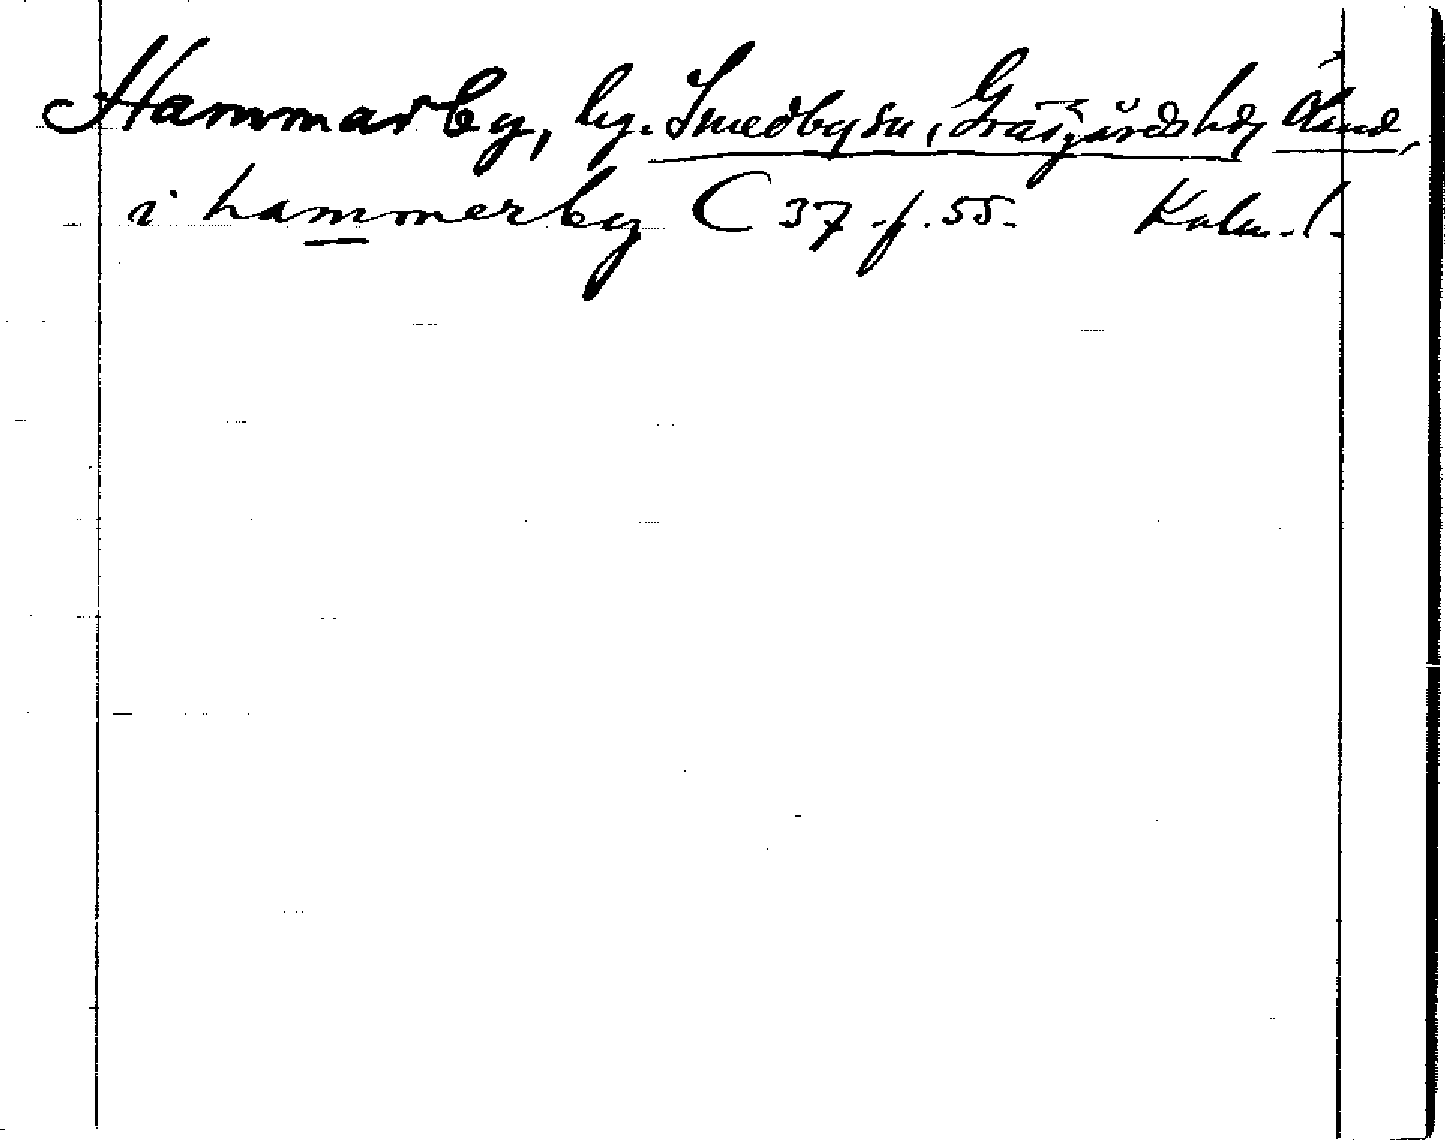 Hammarby, by. Smedby sn, Gräsgårds hd, Öland,
i hammerby C 37 f. 55. Kalm. l.